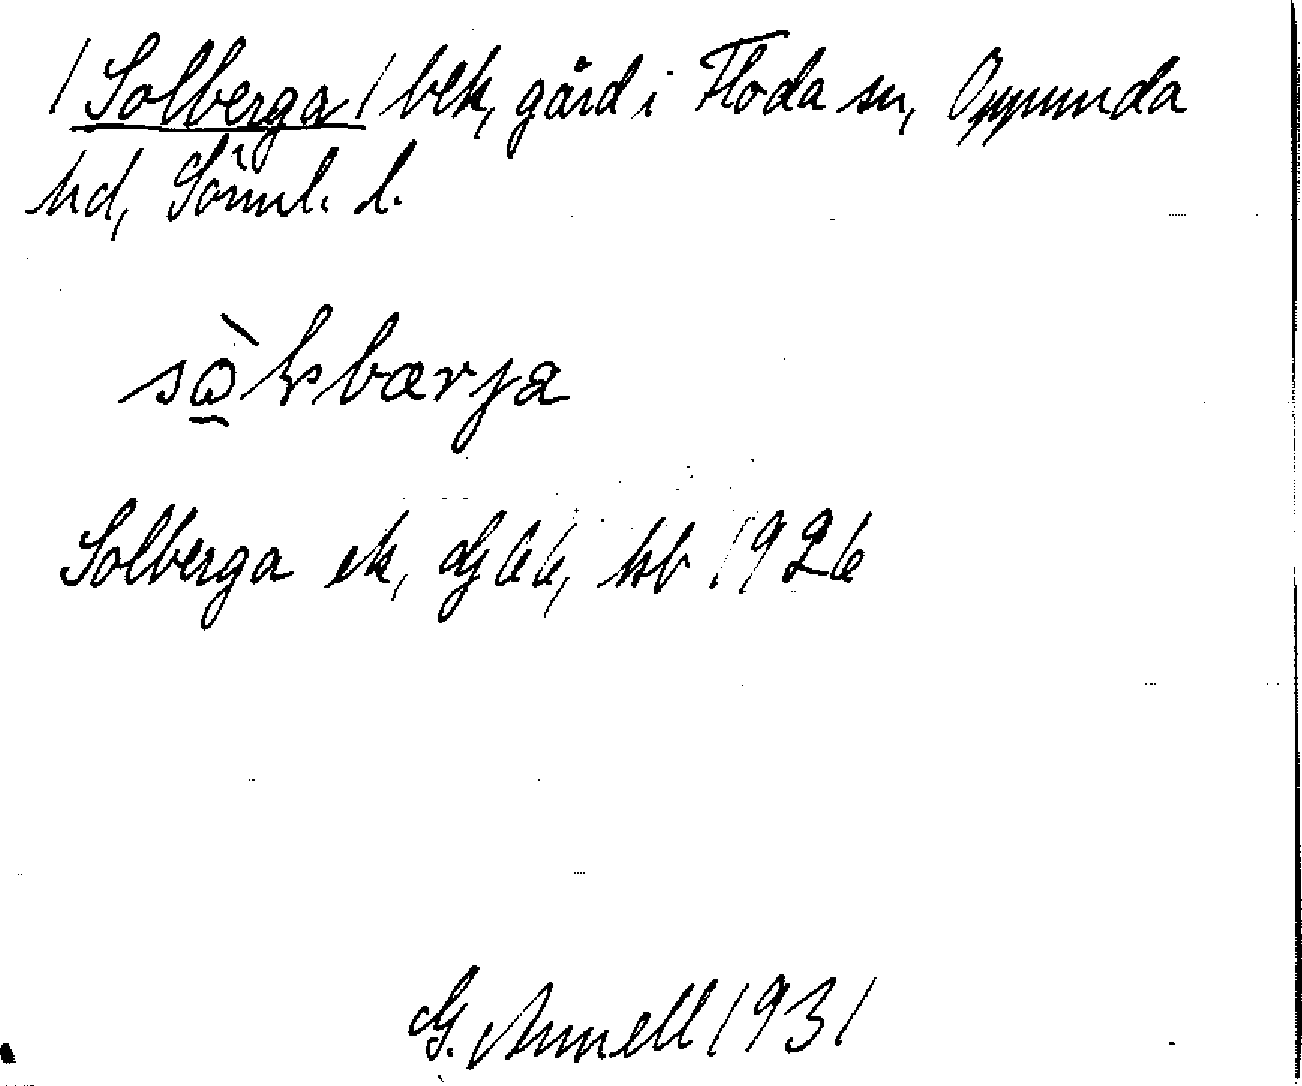 /Solberga/ bek, gård i Floda sn, Oppunda
hd, Sörml. l.
Solberga ek, GG 66, hb 1926
G. Annell 1931